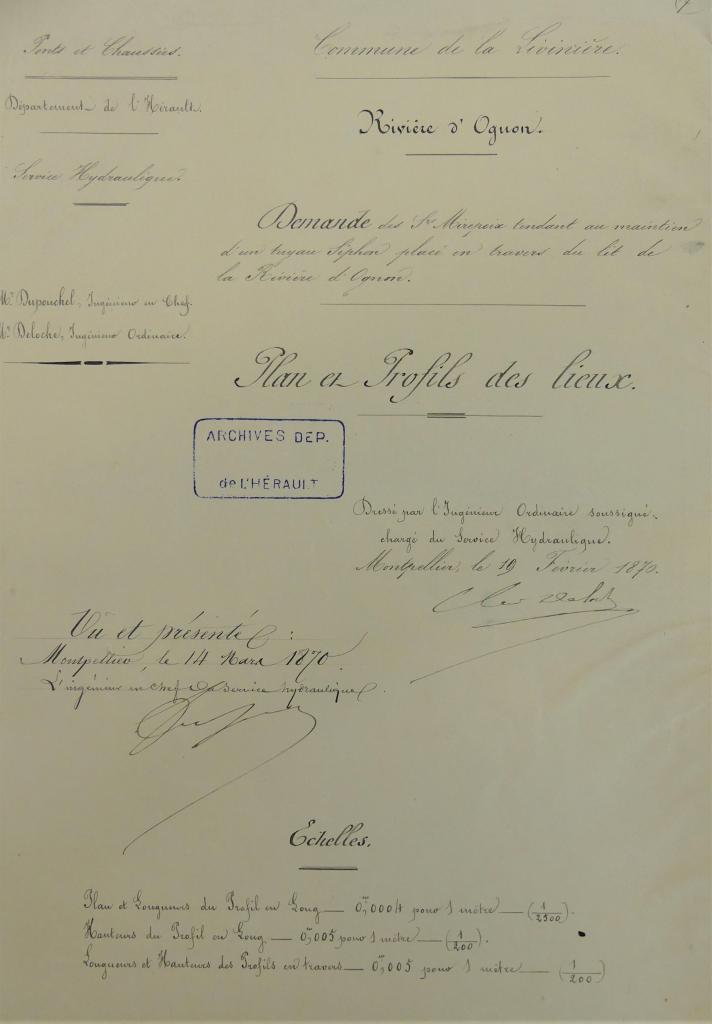 Ponts et Chaussées.
Département de l'Hérault.
Service Hydraulique.
Mr. Dupouchel, Ingénieur en Chef.
Mr. Deloche, Ingénieur Ordinaire.
Commune de la Livinière.
Rivière d'Ognon.
Demande des Srs Mirepeix tendant au maintien
d'un tuyau Siphon placé en travers du lit de
la Rivière d'Ognon.
Plan et Profils des lieux.
ARCHIVES DEP.
de L'HÉRAULT
Dressé par l'Ingénieur Ordinaire soussigné,
chargé du Service Hydraulique.
Montpellier, le 19 Février 1870.
Vu et présenté :
Montpellier, le 14 Mars 1870.
L'ingénieur en chef du Service hydraulique
Echelles.
Plan et Longueurs du Profil en Long — 0m,0004 pour 1 mètre — (1/2500).
Hauteurs du Profil en Long — 0m,005 pour 1 mètre — (1/200).
Longueurs et Hauteurs des Profils en travers — 0m,005 pour 1 mètre — (1/200)